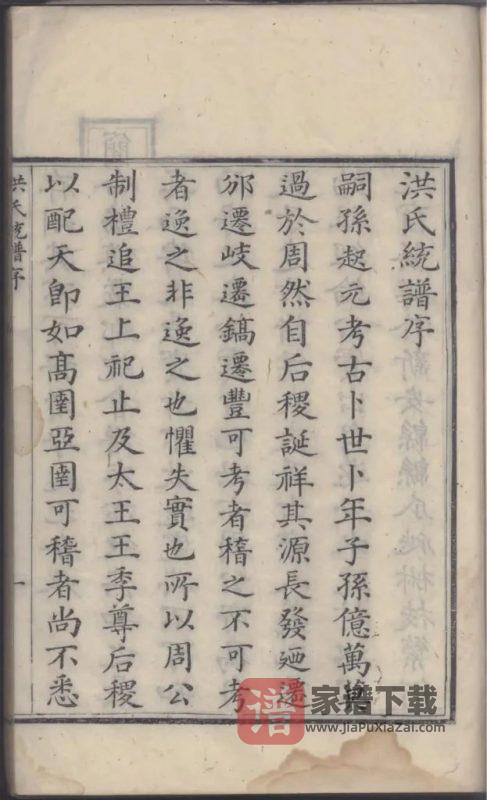 洪氏統譜序
嗣孫起元考古卜世卜年子孫億萬
過於周然自后稷誕祥其源長發廼遷
邠遷岐遷鎬遷豐可考者稽之不可考
者逸之非逸之也懼失實也所以周公
制禮追王上祀止及太王王季尊后稷
以配天卽如髙圉亞圉可稽者尚不悉
洪氏統譜序
一
谱
家谱下载
www.jiaPuxiaZai.com